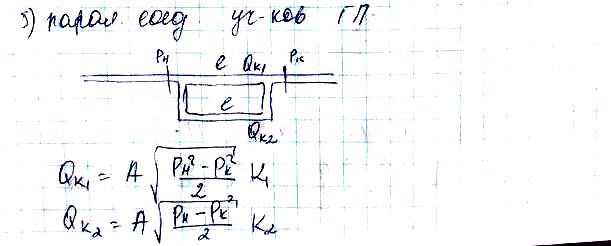 3) парал. соед уч-ков ГП
Pн e Qк₁ Pк
e
Qк₂
Qк₁ = A √((Pн² - Pк²)/2) K₁
Qк₂ = A √((Pн - Pк²)/2) K₂